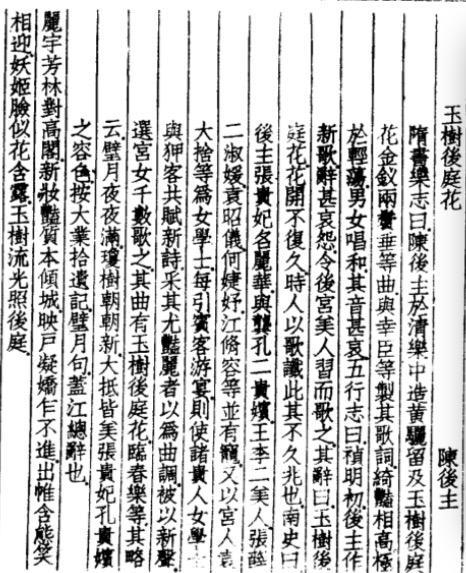 玉樹後庭花 陳後主
隋書樂志曰陳後主於清樂中造黄驪留及玉樹後庭
花金釵兩鬢垂等曲與幸臣等製其歌詞綺豔相高極
於輕蕩男女唱和其音甚哀五行志曰禎明初後主作
新歌辭甚哀怨令後宫美人習而歌之其辭曰玉樹後
庭花花開不復久時人以歌讖此其不久兆也南史曰
後主張貴妃名麗華與龔孔二貴嬪王李二美人張薛
二淑媛袁昭儀何婕妤江脩容等並有寵又以宫人袁
大捨等爲女學士每引賓客游宴則使諸貴人女學士
與狎客共賦新詩采其尤豔麗者以爲曲調被以新聲
選宫女千數歌之其曲有玉樹後庭花臨春樂等其略
云璧月夜夜滿瓊樹朝朝新大抵皆美張貴妃孔貴嬪
之容色按大業拾遺記璧月句蓋江總辭也
麗宇芳林對高閣新妝豔質本傾城映戸凝嬌乍不進出帷含態笑
相迎妖姬臉似花含露玉樹流光照後庭